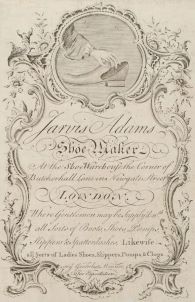 Jarvis Adams
Shoe Maker
At the Shoe Warehouse the Corner of
Butcherhall Lane in Newgate Street
LONDON
Where Gentlemen may be Supply'd wth
all Sorts of Boots, Shoes, Pumps,
Slippers & Spatterdashes Likewise
all Sorts of Ladies Shoes, Slippers, Pumps, & Clogs